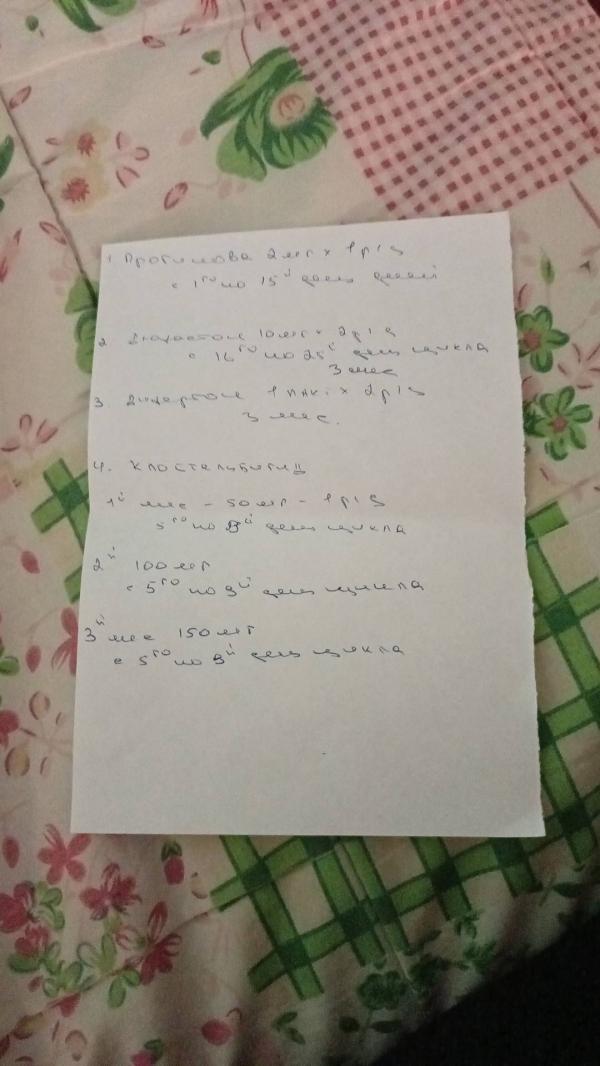 1 Прогинова 2мг × 1р/д
с 1го по 15й день цикла
2 10мг × 2р/д
с 16го по 25й день цикла
3 мес
3. 1 пак. × 2р/д
3 мес.
4. Клостилбегит
1й мес – 50мг – 1р/д
5го по 9й день цикла
2й 100мг
с 5го по 9й день цикла
3й мес 150мг
с 5го по 9й день цикла